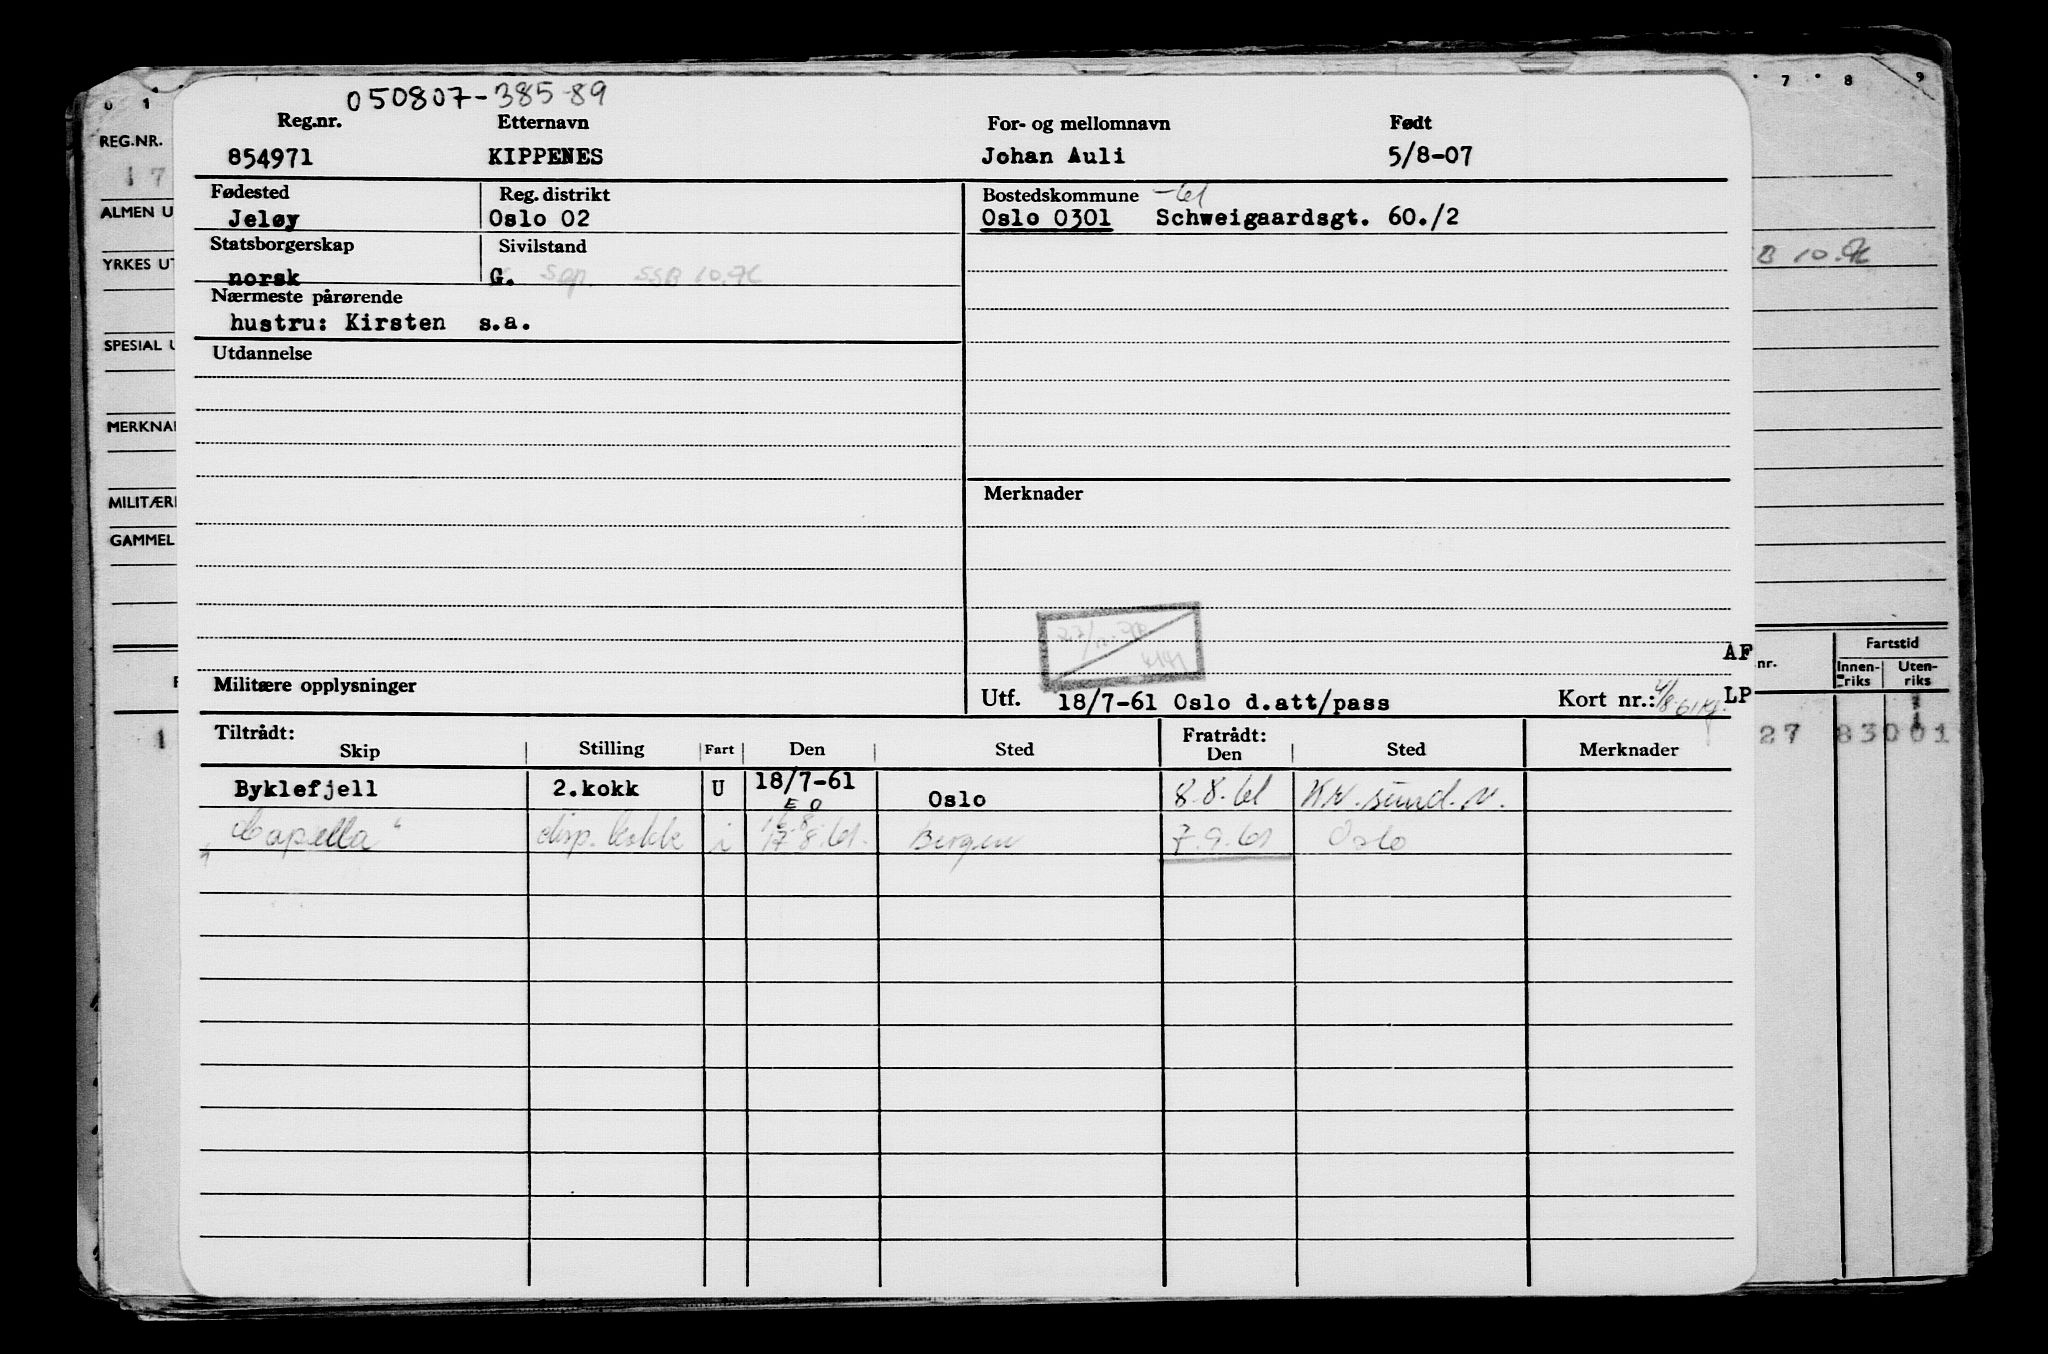 050807-38589
Reg.nr. Etternavn For- og mellomnavn Født
854971 KIPPENES Johan Auli 5/8-07
Fødested Reg. distrikt Bostedskommune -61
Jeløy Oslo 02 Oslo 0301 Schweigaardsgt. 60./2
Statsborgerskap Sivilstand
norsk G. Sep. SSB 10.
Nærmeste pårørende
hustru: Kirsten s.a.
Utdannelse
Merknader
Militære opplysninger
Utf. 18/7-61 Oslo d.att/pass Kort nr.:
AF
LP
Tiltrådt: Fratrådt:
Skip Stilling Fart Den Sted Den Sted Merknader
Byklefjell 2.kokk U 18/7-61 Oslo 8.8.61 Kr.sund.N.
E O
"Capella" disp. kokk i 17.8.61. Bergen 7.9.61 Oslo
0 1
REG.NR.
17
ALMEN U
YRKES UT
SPESIAL U
MERKNA
MILITÆR
GAMMEL
1
7 8 9
B 10.
nr. Fartstid
Innen-riks Uten-riks
27 83001